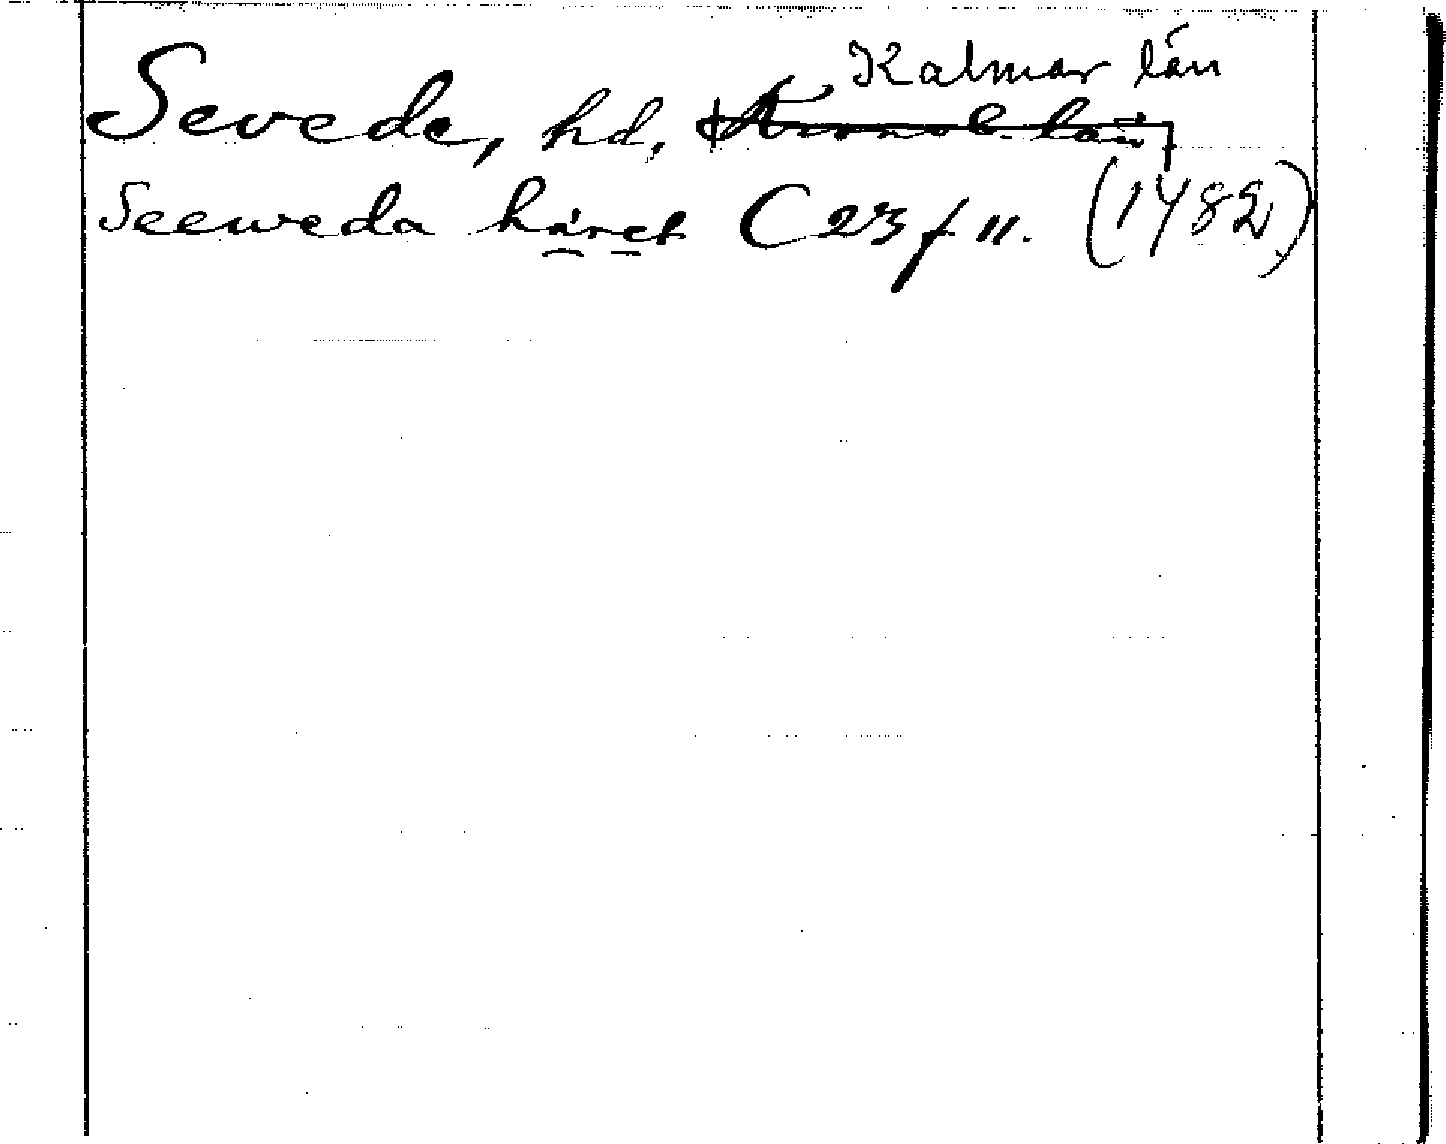 Kalmar län
Sevede, hd, Kronob. län
Seeweda häret C 23 f 11. (1482)